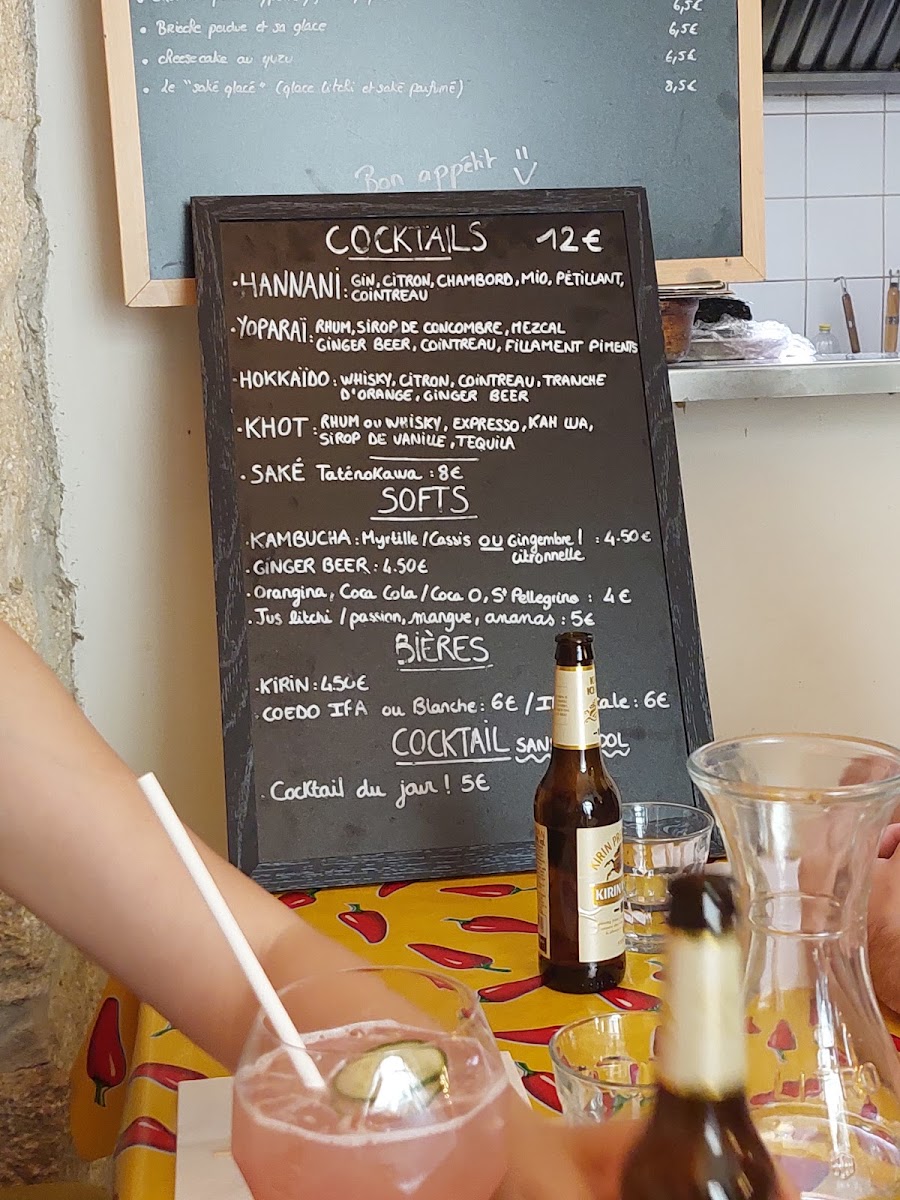 6,5€
• Brioche perdue et sa glace 6,5€
• cheesecake au yuzu 6,5€
• le "saké glacé" (glace litchi et saké parfumé) 8,5€
Bon appétit
COCKTAILS 12€
• HANNANi : GiN, CiTRON, CHAMBORD, MiO, PÉTiLLANT,
COiNTREAU
• YOPARAÏ : RHUM, SiROP DE CONCOMBRE, MEZCAL
GiNGER BEER, COiNTREAU, FiLLAMENT PiMENTS
• HOKKAÏDO : WHiSKY, CiTRON, COiNTREAU, TRANCHE
D'ORANGE, GiNGER BEER
• KHOT : RHUM ou WHiSKY, EXPRESSO, KAH LUA,
SiROP DE VANiLLE, TEQUiLA
• SAKÉ Taténokawa : 8€
SOFTS
• KAMBUCHA : Myrtille / Cassis OU Gingembre / : 4.50€
citronnelle
• GiNGER BEER : 4.50€
• Orangina, Coca Cola / Coca 0, St Pellegrino : 4€
• Jus litchi / passion, mangue, ananas : 5€
BiÈRES
• KiRiN : 4.50€
• COEDO IPA ou Blanche : 6€ / ale : 6€
COCKTAiL SANS
• Cocktail du jour ! 5€
KIRIN
KIRIN